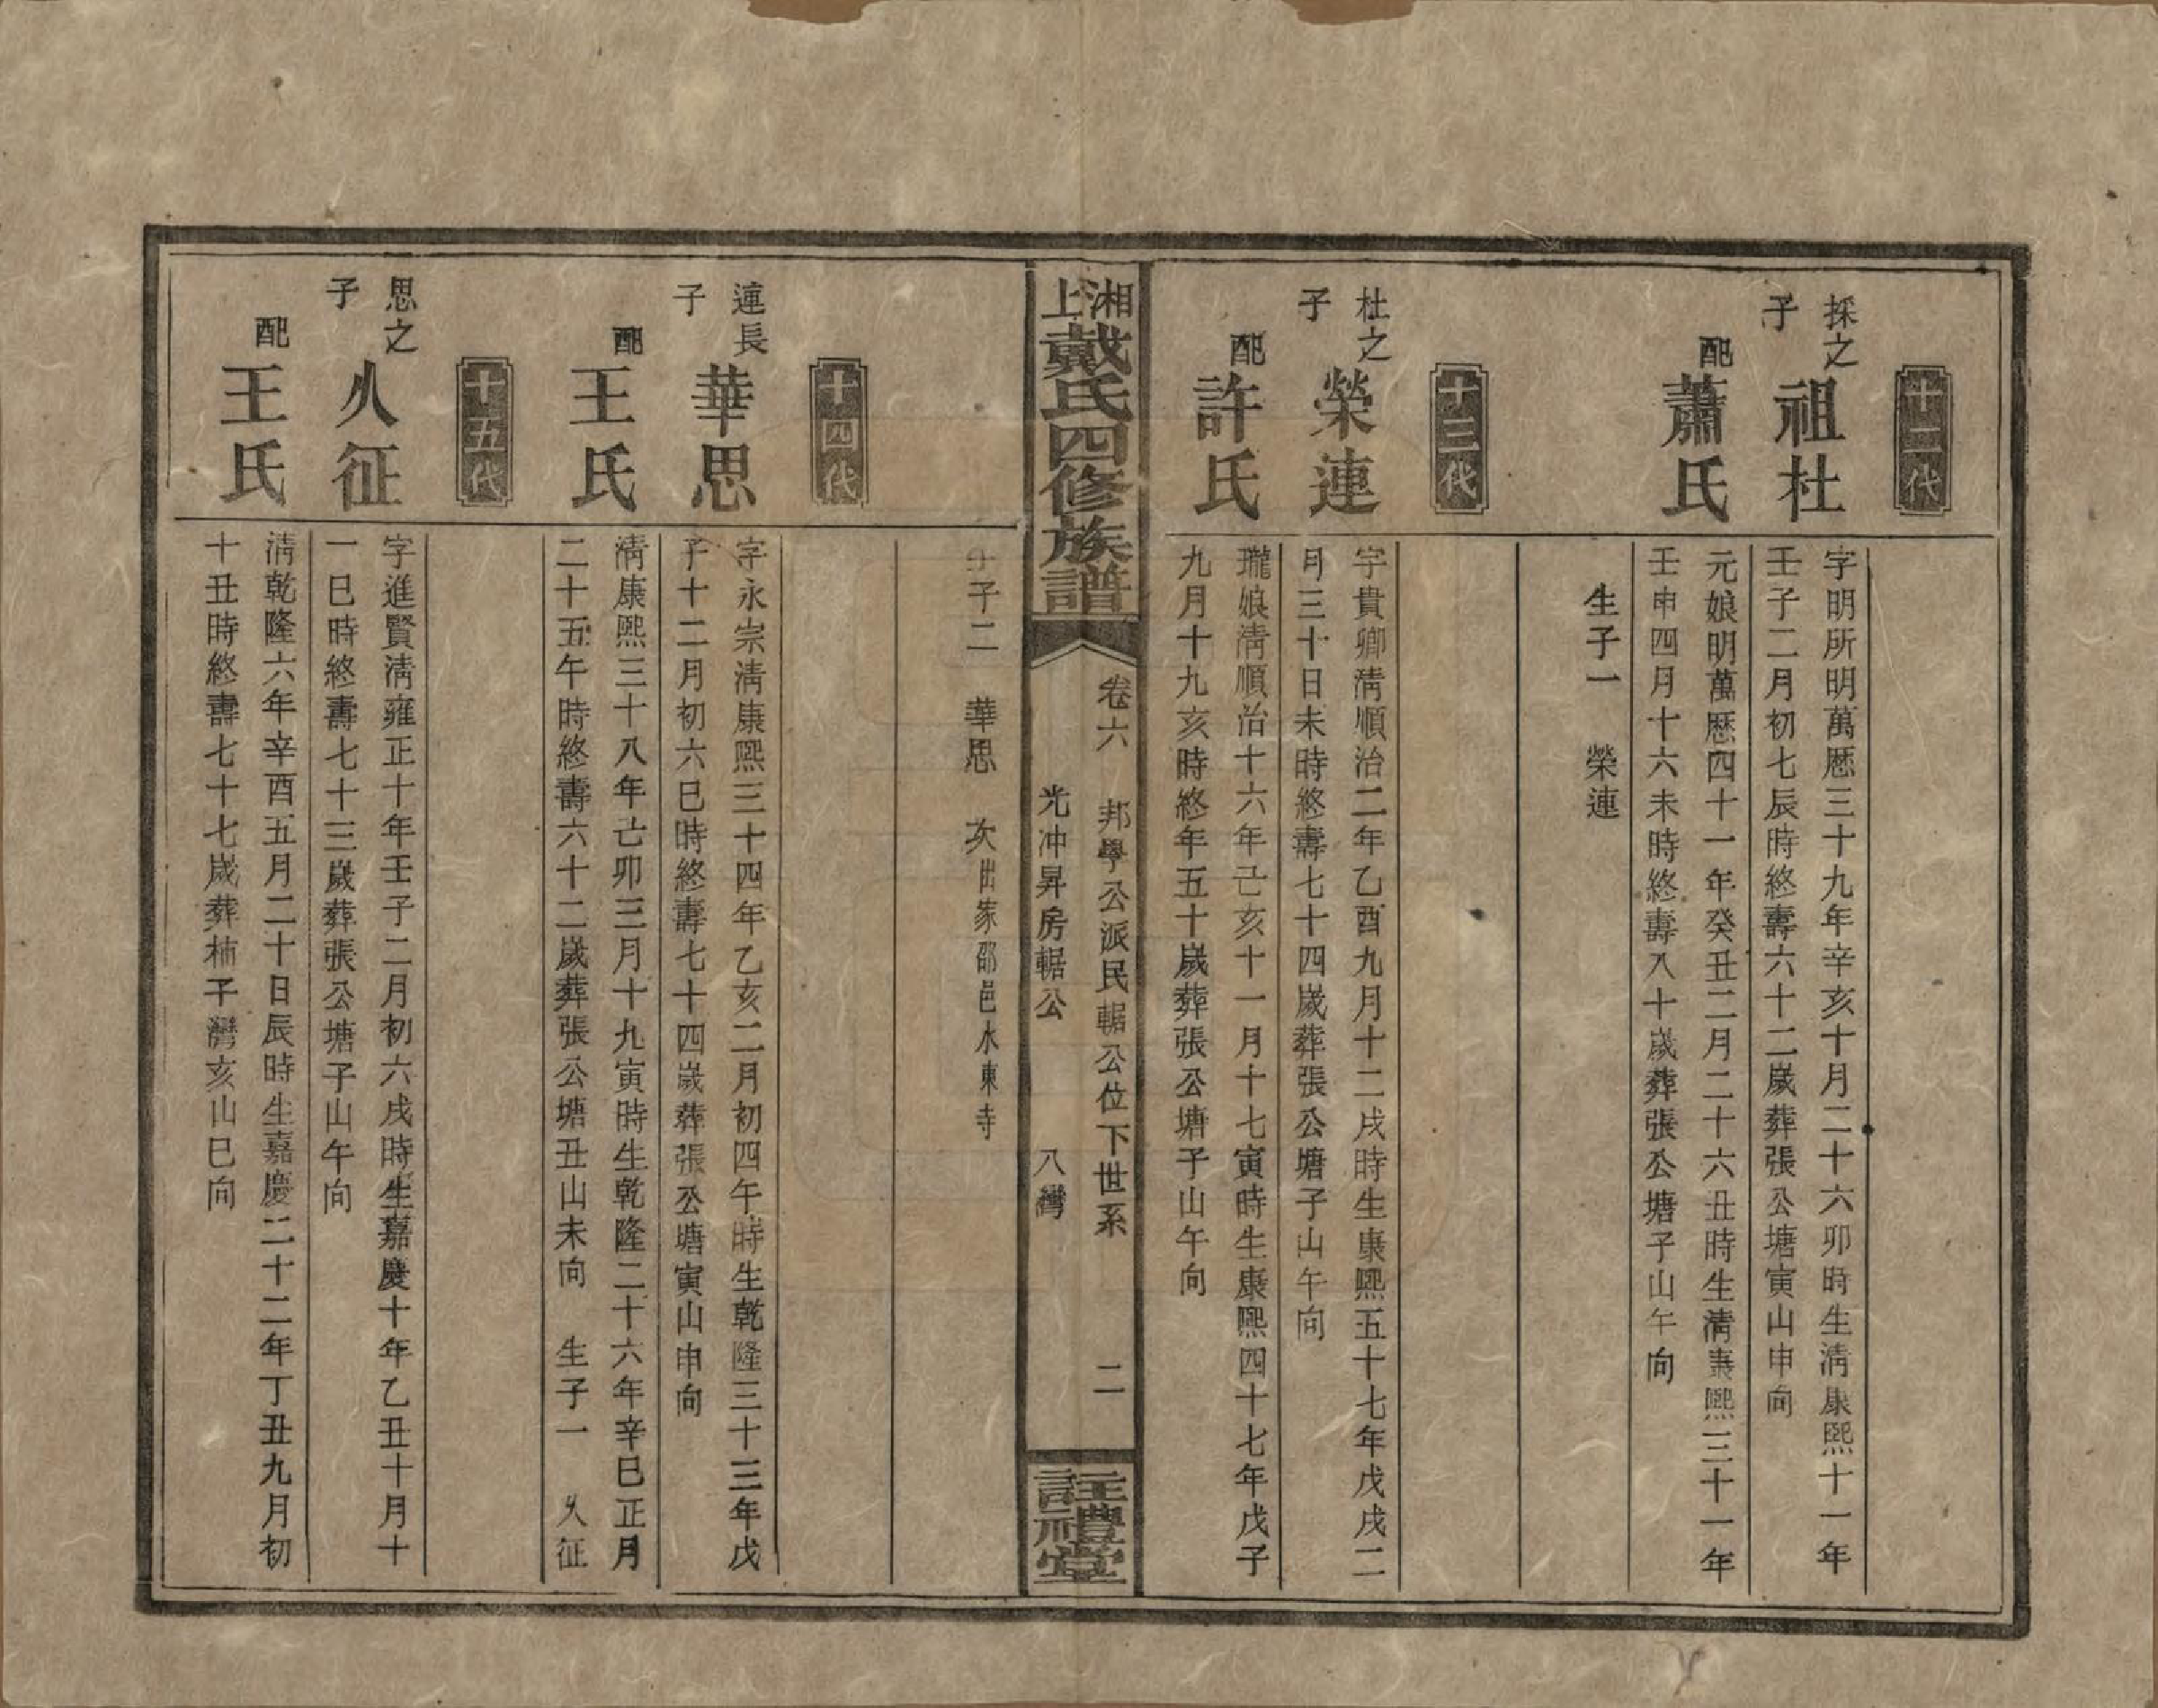 十二代
採之子
祖杜
字明所明萬厯三十九年辛亥十月二十六卯時生淸康熙十一年
壬子二月初七辰時終壽六十二歲葬張公塘寅山申向
配
蕭氏
元娘明萬厯四十一年癸丑二月二十六丑時生淸康熙三十一年
壬申四月十六未時終壽八十歲葬張公塘子山午向
生子一　榮連
十三代
杜之子
榮連
字貴卿淸順治二年乙酉九月十二戌時生康熙五十七年戊戌二
月三十日未時終壽七十四歲葬張公塘子山午向
配
許氏
瓏娘淸順治十六年己亥十一月十七寅時生康熙四十七年戊子
九月十九亥時終年五十歲葬張公塘子山午向
湘上戴氏四修族譜
卷六　邦學公派民輼公位下世系　二
光冲昇房輼公　八灣
註禮堂
生子二　華思　次出家邵邑水東寺
十四代
連長子
華思
字永宗淸康熙三十四年乙亥二月初四午時生乾隆三十三年戊
子十二月初六巳時終壽七十四歲葬張公塘寅山申向
配
王氏
淸康熙三十八年己卯三月十九寅時生乾隆二十六年辛巳正月
二十五午時終壽六十二歲葬張公塘丑山未向　生子一　乆征
十五代
思之子
乆征
字進賢淸雍正十年壬子二月初六戌時生嘉慶十年乙丑十月十
一巳時終壽七十三歲葬張公塘子山午向
配
王氏
淸乾隆六年辛酉五月二十日辰時生嘉慶二十二年丁丑九月初
十丑時終壽七十七歲葬柿子灣亥山巳向